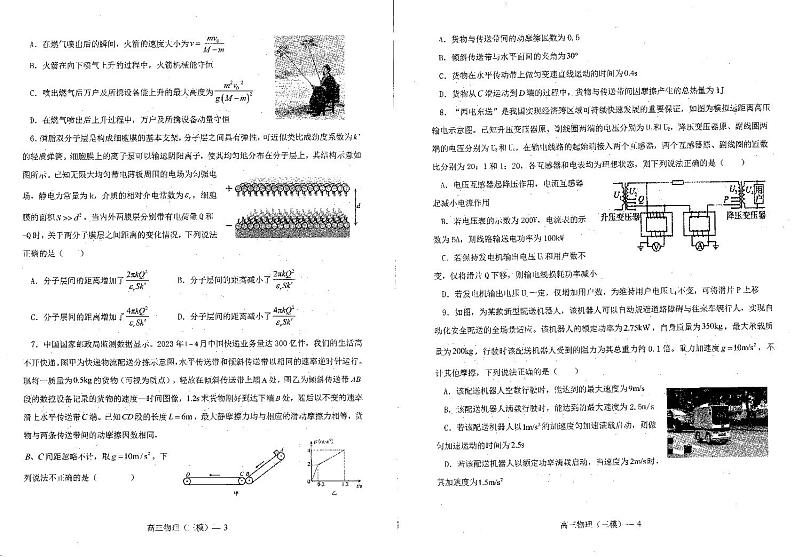 A．在燃气喷出后的瞬间，火箭的速度大小为v=mv₀/(M−m)
B．火箭在向下喷气上升的过程中，火箭机械能守恒
C．喷出燃气后万户及所携设备能上升的最大高度为m²v₀²/g(M−m)²
D．在燃气喷出后上升过程中，万户及所携设备动量守恒
6.磷脂双分子层是构成细胞膜的基本支架，分子层之间具有弹性，可近似类比成劲度系数为k'
的轻质弹簧，细胞膜上的离子泵可以输运阴阳离子，使其均匀地分布在分子层上，其结构示意如
图所示，已知无限大均匀带电薄板周围的电场为匀强电
场，静电力常量为k，介质的相对介电常数为εr，细胞
膜的面积S>>d²，当内外两膜层分别带有电荷量Q和
-Q时，关于两分子膜层之间距离的变化情况，下列说法
正确的是（ ）
d
A．分子层间的距离增加了2πkQ²/εrSk'
B．分子层间的距离减小了2πkQ²/εrSk'
C．分子层间的距离增加了4πkQ²/εrSk'
D．分子层间的距离减小了4πkQ²/εrSk'
7．中国国家邮政局监测数据显示，2023年1-4月中国快递业务量达300亿件，我们的生活离
不开快递，图甲为快递物流配送分拣示意图，水平传送带和倾斜传送带以相同的速率逆时针运行。
现将一质量为0.5kg的货物（可视为质点），轻放在倾斜传送带上端A处，图乙为倾斜传送带AB
段的数控设备记录的货物的速度—时间图像，1.2s末货物刚好到达下端B处，随后以不变的速率
滑上水平传送带C端。已知CD段的长度L=6m，最大静摩擦力均与相应的滑动摩擦力相等，货
物与两条传送带间的动摩擦因数相同，
B、C间距忽略不计，取g=10m/s²，下
列说法不正确的是（ ）
D
C
B
A
甲
0
0.2
1.2
t/s
乙
高三物理（三模）— 3
A．货物与传送带间的动摩擦因数为0.5
B．倾斜传送带与水平面间的夹角为30°
C．货物在水平传动带上做匀变速直线运动的时间为0.4s
D．货物从C端运动到D端的过程中，货物与传送带间因摩擦产生的总热量为1J
8．“西电东送”是我国实现经济跨区域可持续快速发展的重要保证，如图为模拟远距离高压
输电示意图。已知升压变压器原、副线圈两端的电压分别为U₁和U₂，降压变压器原、副线圈两
端的电压分别为U₃和U₄。在输电线路的起始端接入两个互感器，两个互感器原、副线圈的匝数
比分别为20：1和1：20，各互感器和电表均为理想状态，则下列说法正确的是（ ）
A．电压互感器起降压作用，电流互感器
起减小电流作用
B．若电压表的示数为200V，电流表的示
数为5A，则线路输送电功率为100kW
C．若保持发电机输出电压U₁和用户数不
变，仅将滑片Q下移，则输电线损耗功率减小
D．若发电机输出电压U₁一定，仅增加用户数，为维持用户电压U₄不变，可将滑片P上移
U₁
U₂
Q
P
U₃
U₄
用户
升压变压器
降压变压器
V
A
9．如图，为某款新型配送机器人，该机器人可以自动规避道路障碍与往来车辆行人，实现自
动化安全配送的全场景适应。该机器人的额定功率为2.75kW，自身质量为350kg，最大承载质
量为200kg，行驶时该配送机器人受到的阻力为其总重力的0.1倍。重力加速度g=10m/s²，不
计其他摩擦，下列说法正确的是（ ）
A．该配送机器人空载行驶时，能达到的最大速度为9m/s
B．该配送机器人满载行驶时，能达到的最大速度为2.5m/s
C．若该配送机器人以1m/s²的加速度匀加速满载启动，则做
匀加速运动的时间为2.5s
D．若该配送机器人以额定功率满载启动，当速度为2m/s时，
其加速度为1.5m/s²
高三物理（三模）— 4